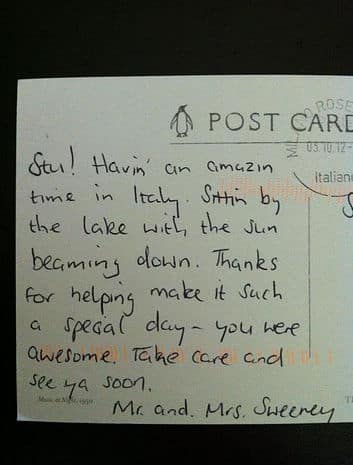 POST CARD
ROSE
03.10.12-
Italian
Stu! Havin' an amazin
time in Italy. Sittin by
the lake with the sun
beaming down. Thanks
for helping make it such
a special day - you were
awesome. Take care and
see ya soon.
Mr. and. Mrs. Sweeney
Music at Night, 1950